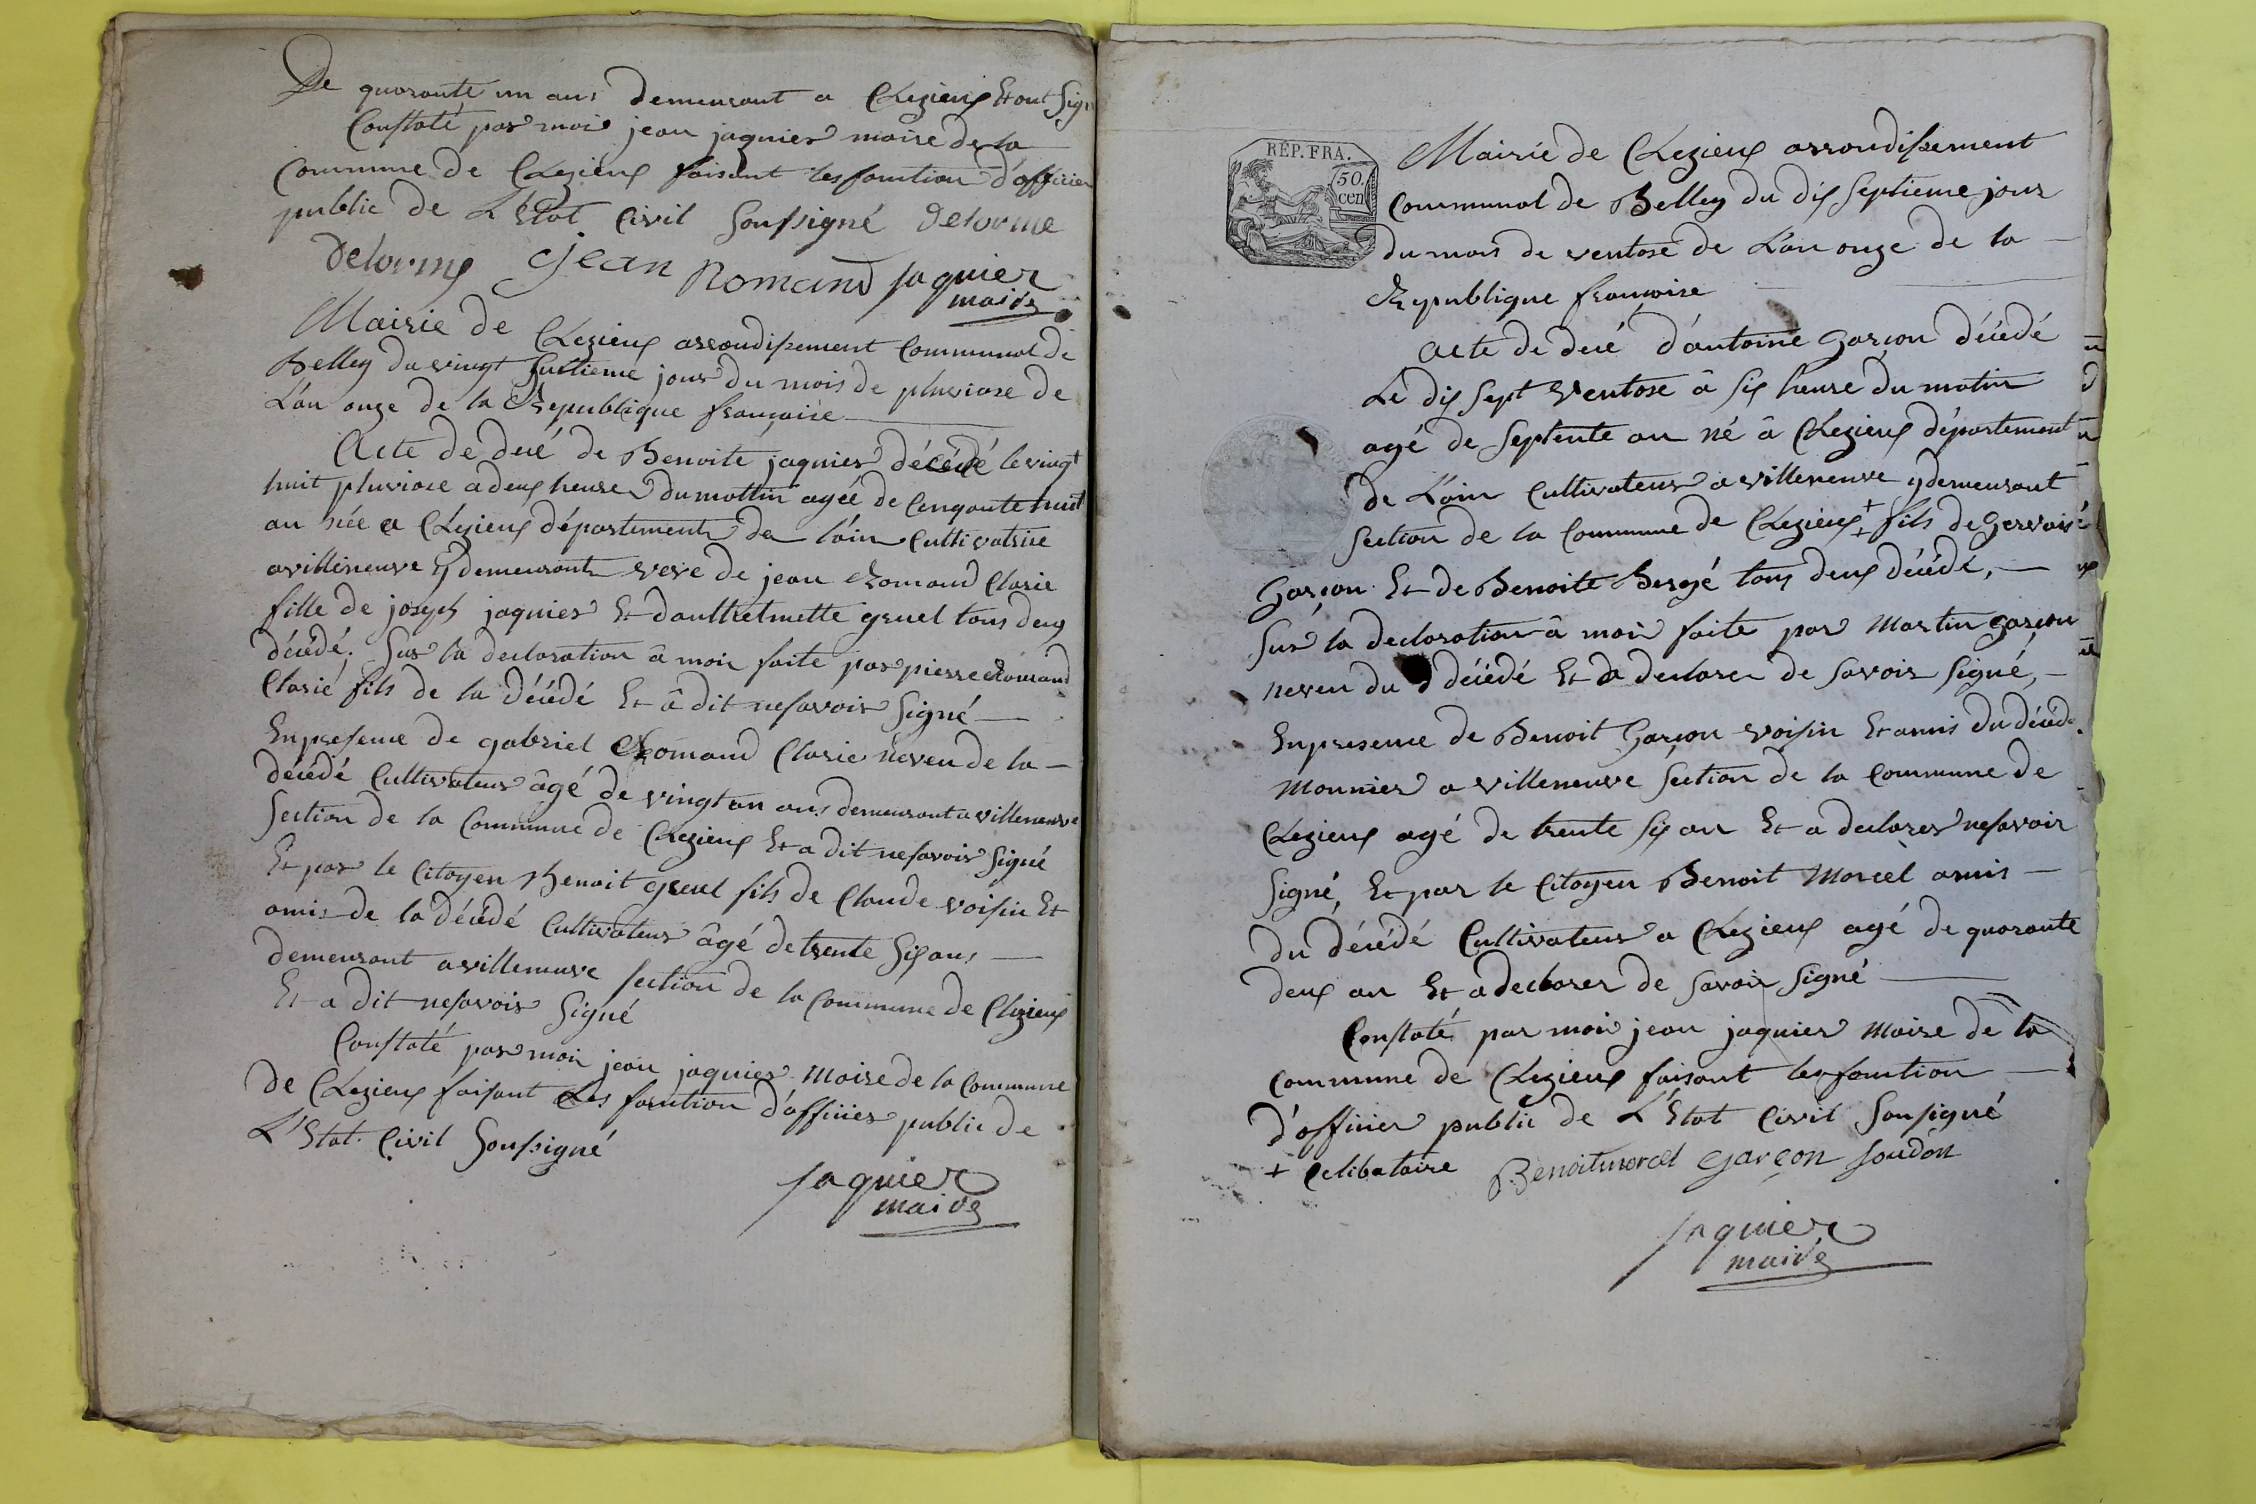 De quarante un ans demeurant a Chezieux Et ont Sign
Constaté par moi jean jaquier maire de la
Commune de Chezieux faisant les fonction d'officier
public de L'Etat Civil Soussigné delorme
delorme jean Romand jaquier
maire
Mairie de Chezieux arrondissement Communal de
Belley du vingt huitieme jour du mois de pluviose de
L'an onze de la Republique francoise
Acte de decé de Benoite jaquier décédé le vingt
huit pluviose a deux heures du mattin agée de Cinquante huit
an née a Chezieux département de lain Cultivatrice
a villeneuve y demeurant veve de jean Romand Clarie
fille de joseph jaquier Et danthelmette gruel tous deux
décédé. Sur la declaration â moi faite par pierre Romand
Clarie fils de la décédé Et â dit ne savoir Signé
En presence de gabriel Romand Clarie neveu de la
décédé Cultivateur âgé de vingt un ans demeurant a villeneuve
Section de la Commune de Chezieux Et a dit ne savoir Signé
Et par le Citoyen Benoit gruel fils de Claude voisin Et
amis de la décédé Cultivateur âgé de trente Six ans
demeurant a villeneuve Section de la Commune de Chezieux
Et a dit ne savoir Signé
Constaté par moi jean jaquier Maire de la Commune
de Chezieux faisant Les fonction d'officier public de
L'Etat Civil Soussigné
jaquier
maire
RÉP. FRA.
50.
cen
Mairie de Chezieux arrondissement
Communal de Belley du dix Septieme jour
du mois de ventose de L'an onze de la
Republique francoise
Acte de decé d'antoine garçon décédé
Le dix Sept Ventose â six heure du matin
agé de Septente an né â Chezieux département
de L'ain Cultivateur a villeneuve y demeurant
Section de la Commune de Chezieux + fils de gervais
garçon Et de Benoite Bergé tous deux décédé,
Sur la declaration â moi faite par Martin garçon
neveu du décédé Et a declarer de Savoir Signé,
En presence de Benoit Garçon voisin Et amis du décédé
Monnier a villeneuve Section de la Commune de
Chezieux agé de trente six an Et a declarer ne savoir
Signé, Et par le Citoyen Benoit Morcel amis
du décédé Cultivateur a Chezieux agé de quarante
deux an Et a declarer de Savoir Signé
Constaté par moi jean jaquier Maire de la
Commune de Chezieux faisant les fonction
d'officier public de L'Etat Civil Sousigné
+ Celibataire Benoitmorcel garçon soudon
jaquier
maire